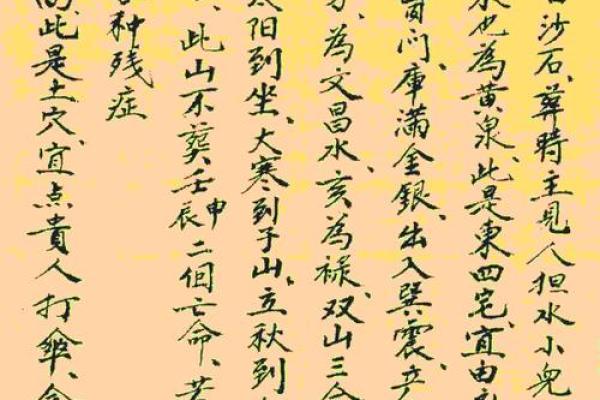 沙石、葬時主見人担水小兒
也為黃泉、此是東四宅、宜由
门、庫滿金銀、出入巽震、产
為文昌水、亥為禄、双山三合
太阳到坐、大寒到子山、立秋到
、此山不葬壬申辰二個亡命、若
种残症
此是土穴、宜点貴人打傘、